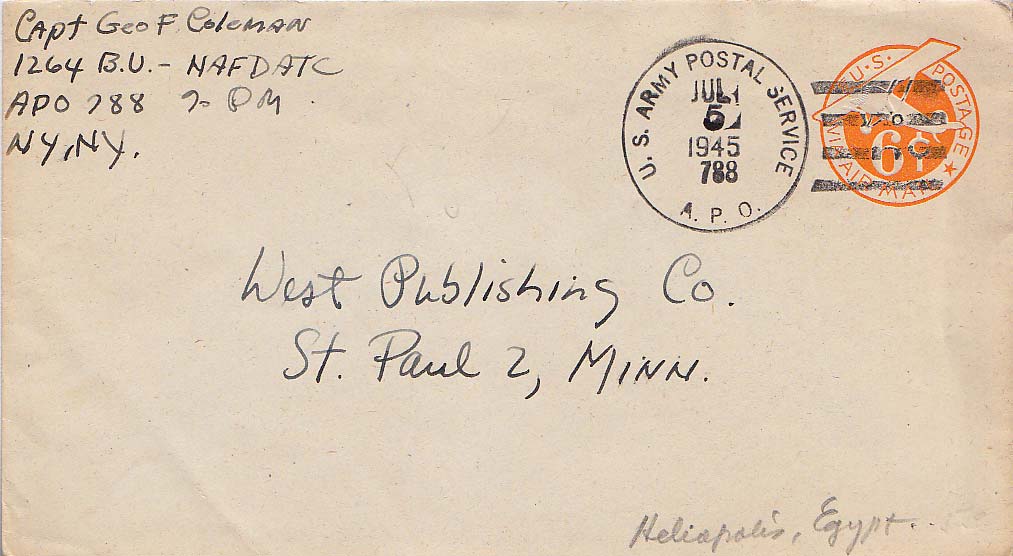 Capt Geo F. Coleman
1264 B.U. - NAFDATC
APO 788 % PM
NY, NY.
U. S. ARMY POSTAL SERVICE
JUL
5
1945
788
A. P. O.
U.S. POSTAGE
6¢
VIA AIR MAIL
West Publishing Co.
St. Paul 2, Minn.
Heliopolis, Egypt..